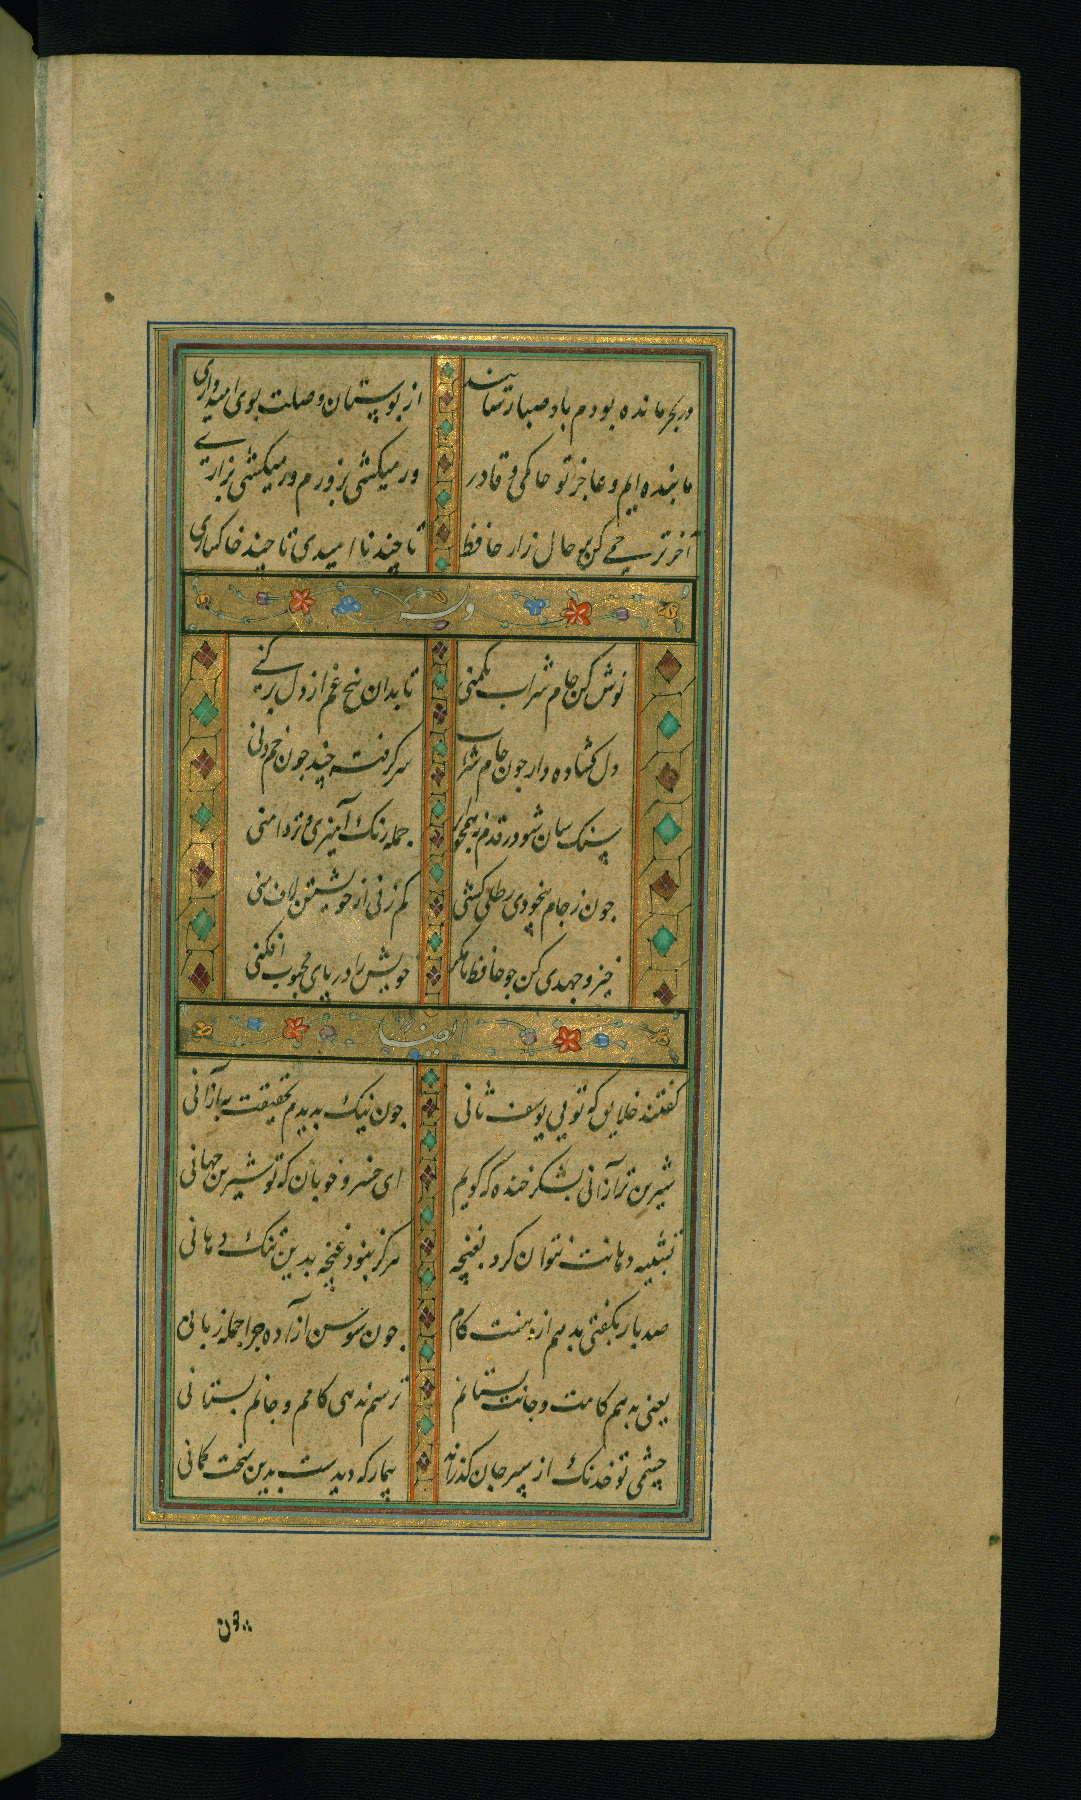 در بحر مانده بودم باد صبا رسانید از بوستان وصلت بوی امیدواری
ما بنده ایم و عاجز تو حاکمی و قادر ور میکشی بزورم ور میکشی بزاری
آخر ترحمی کن بر حال زار حافظ تا چند نا امیدی تا چند خاکساری
وله
نوش کن جام شراب یکمنی تا بدان بیخ غم از دل برکنی
دل کشاده دار چون جام شراب سر کرفته چند چون خم دنی
سنک سان شو در قدم نی همچو جمله رنک آمیزی و تردامنی
چون ز جام بیخودی رطلی کشی کم زنی از خویشتن لاف منی
خیز و جهدی کن چو حافظ تا مکر خویش را در پای محبوب افکنی
ایضا
کفتند خلایق که تویی یوسف ثانی چون نیک بدیدم بحقیقت به از آنی
شیرین تر از آنی بشکر خنده که کویم ای خسرو خوبان که تو شیرین جهانی
تشبیه دهانت نتوان کرد بغنچه هرکز نبود غنچه بدین تنک دهانی
صد بار بکفتی بدهم از دهنت کام چون سوسن آزاده چرا جمله زبانی
یعنی بدهم کامت و جانت بستانم ترسم ندهی کامم و جانم بستانی
چشمی تو خدنک از سپر جان کذراند بیمار که دیدست بدین سخت کمانی
چون